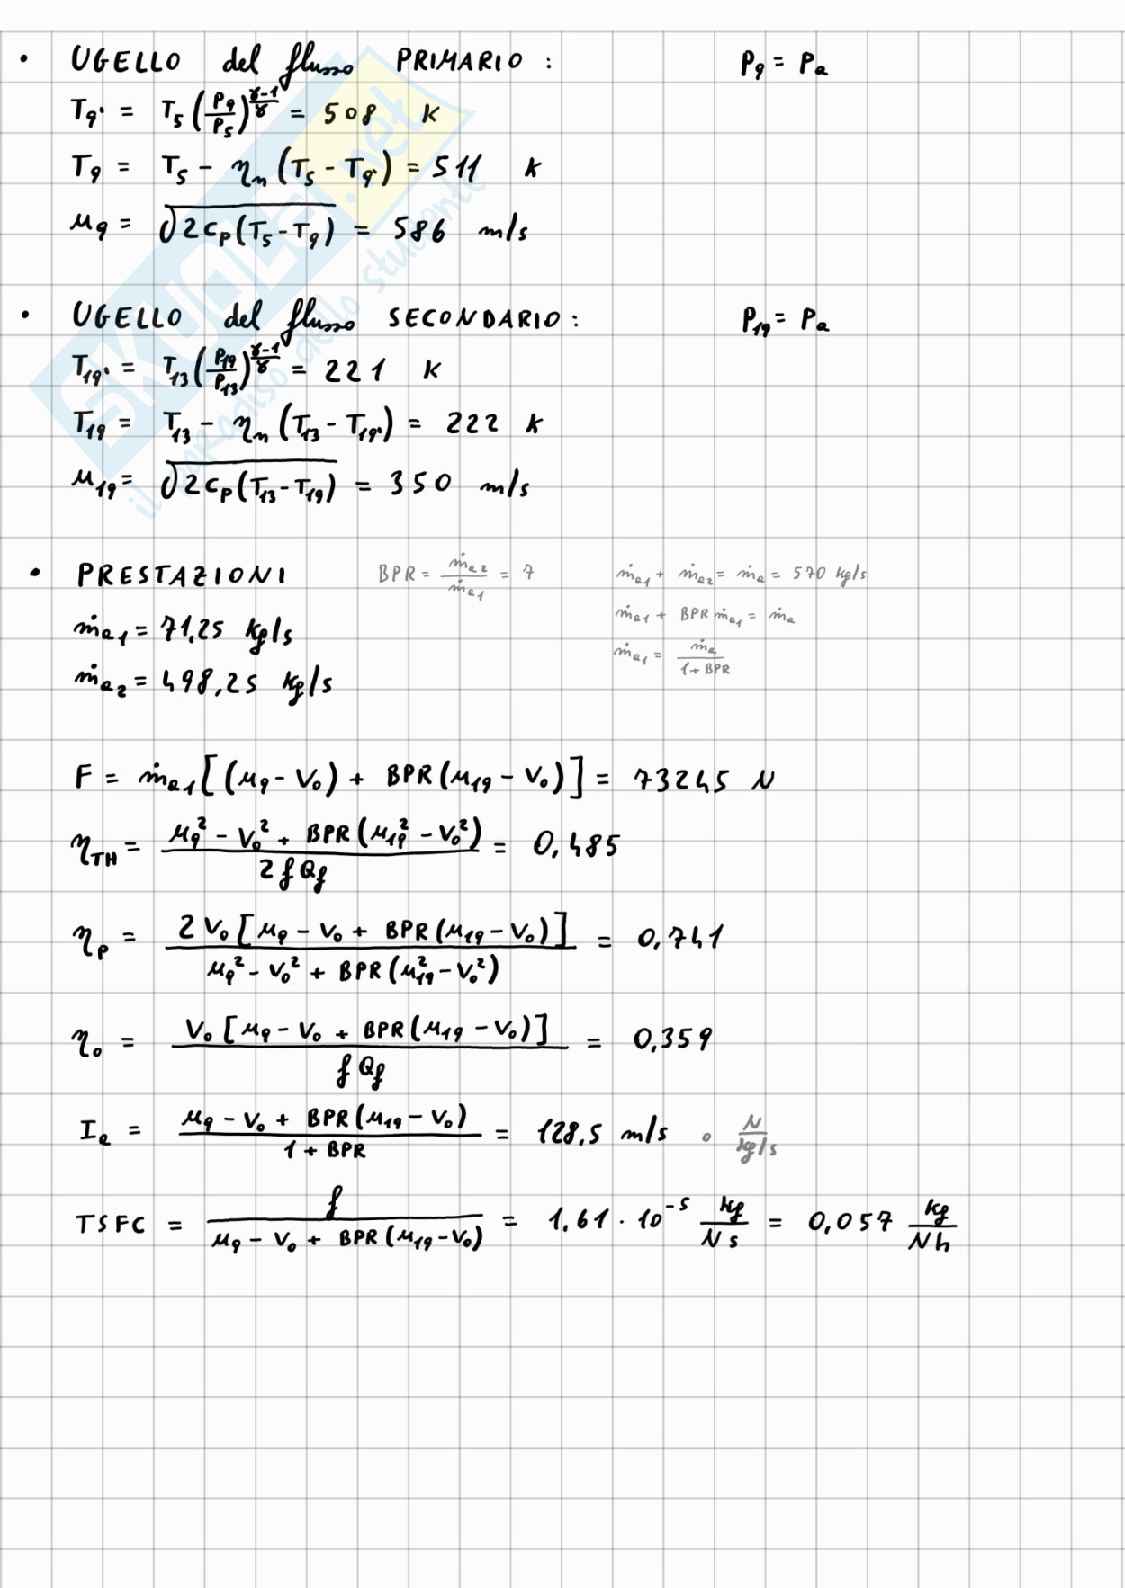 • UGELLO del flusso PRIMARIO : P9 = Pa
T9' = T5 (P9/P5)^((γ-1)/γ) = 508 K
T9 = T5 - ηn (T5 - T9') = 511 K
u9 = √(2 cp (T5 - T9)) = 586 m/s
• UGELLO del flusso SECONDARIO : P19 = Pa
T19' = T13 (P19/P13)^((γ-1)/γ) = 221 K
T19 = T13 - ηn (T13 - T19') = 222 K
u19 = √(2 cp (T13 - T19)) = 350 m/s
• PRESTAZIONI BPR = ṁa2/ṁa1 = 7 ṁa1 + ṁa2 = ṁa = 570 kg/s
ṁa1 + BPR ṁa1 = ṁa
ṁa1 = 71,25 kg/s
ṁa1 = ṁa/(1 + BPR)
ṁa2 = 498,25 kg/s
F = ṁa1 [(u9 - V0) + BPR (u19 - V0)] = 73245 N
ηTH = (u9² - V0² + BPR (u19² - V0²))/(2 f Qf) = 0,485
ηp = (2 V0 [u9 - V0 + BPR (u19 - V0)])/(u9² - V0² + BPR (u19² - V0²)) = 0,741
ηo = (V0 [u9 - V0 + BPR (u19 - V0)])/(f Qf) = 0,359
Ia = (u9 - V0 + BPR (u19 - V0))/(1 + BPR) = 128,5 m/s o N/(kg/s)
TSFC = f/(u9 - V0 + BPR (u19 - V0)) = 1,61 · 10^-5 kg/(N s) = 0,057 kg/(N h)
SKUOLA.net
il paradiso dello studente